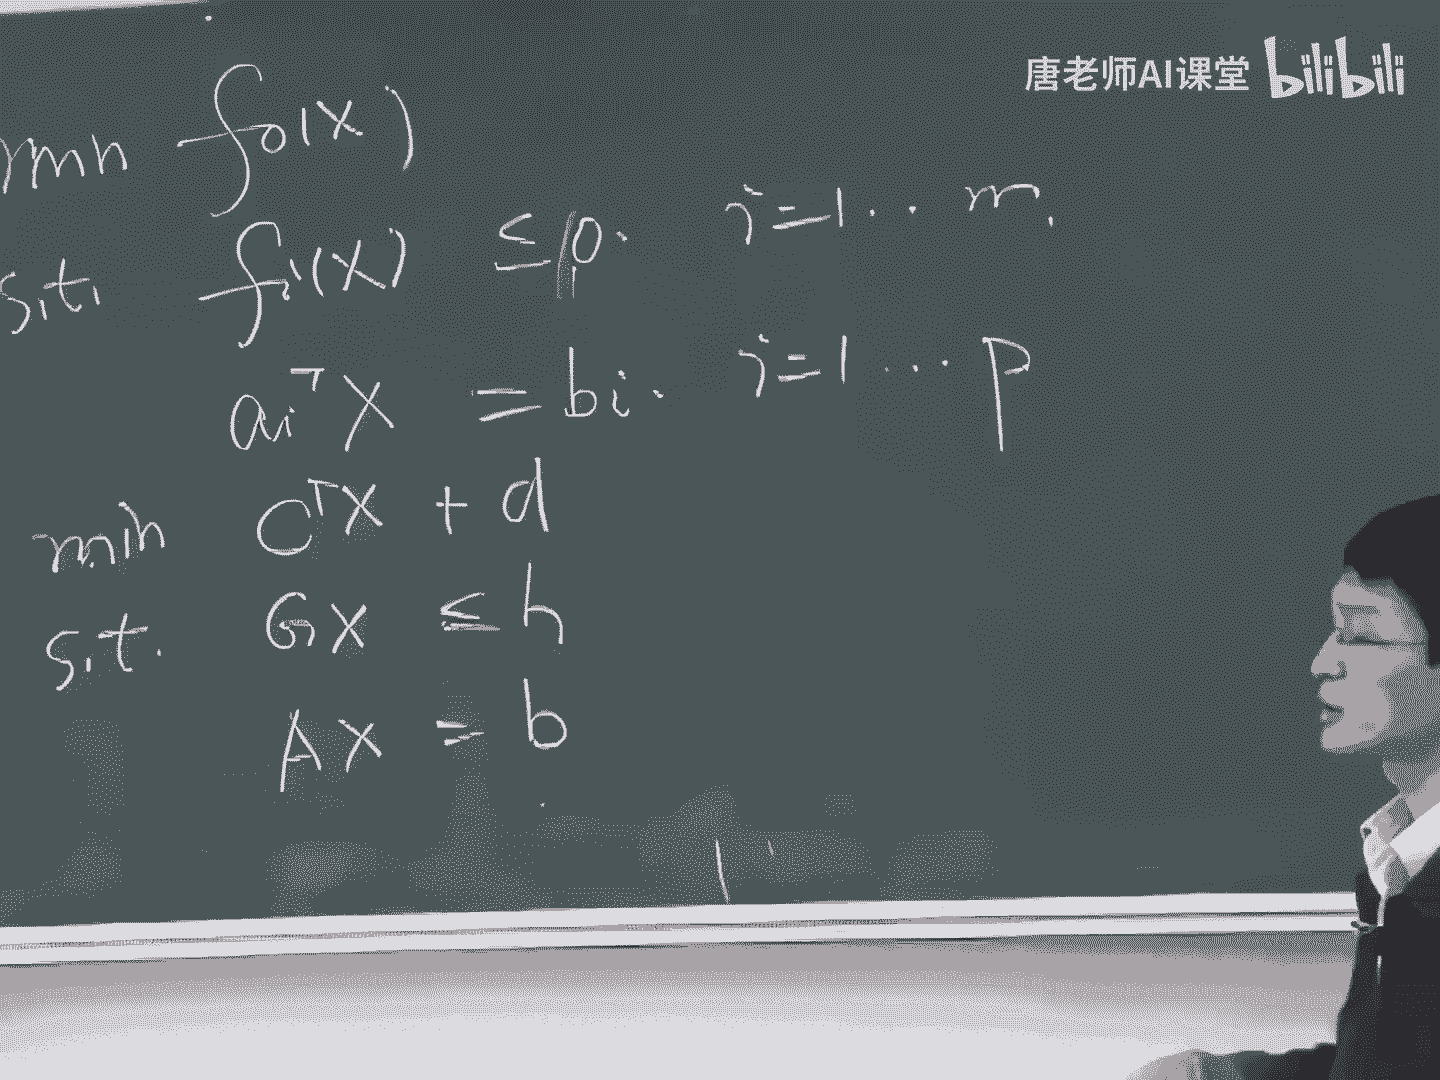 唐老师AI课堂 bilibili
min f₀(x)
s.t. fᵢ(x) ≤ 0. i=1...m.
aᵢᵀx = bi. i=1...p
min cᵀx + d
s.t. Gx ≤ h
Ax = b